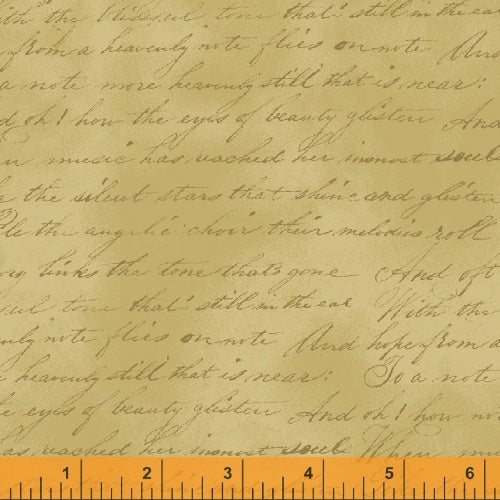 with the blissful tone that's still in the ear
from a heavenly note flies on note And
a note more heavenly still that is near:
d oh! how the eyes of beauty glisten And
music has reached her inmost soul
the silent stars that shine and glisten
le the angelic choir their melodies roll
links the tone that's gone And oft
ful tone that's still in the ear With the
nly note flies on note And hope from a
heavenly still that is near: To a note
e eyes of beauty glisten And oh! how
has reached her inmost soul When music
1 2 3 4 5 6